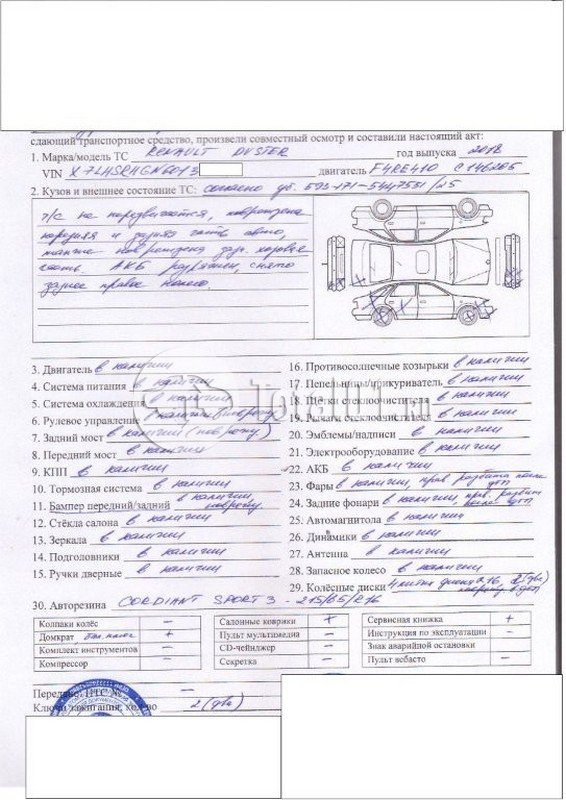 сдающий транспортное средство, произвели совместный осмотр и составили настоящий акт:
1. Марка/модель ТС RENAULT DUSTER год выпуска 2012
VIN X7LHSRHGN6013 двигатель F4RE410 C146205
2. Кузов и внешнее состояние ТС: согласно 593-171-5447551/25
т/с не передвигается, повреждена
передняя и задняя часть авто,
также повреждена зад. ходовая
часть. АКБ разряжен, снято
заднее правое колесо.
3. Двигатель в наличии
4. Система питания в наличии
5. Система охлаждения в наличии
6. Рулевое управление в наличии
7. Задний мост в наличии (повреж)
8. Передний мост в наличии
9. КПП в наличии
10. Тормозная система в наличии
11. Бампер передний/задний в наличии
12. Стёкла салона в наличии
13. Зеркала в наличии
14. Подголовники в наличии
15. Ручки дверные в наличии
16. Противосолнечные козырьки в наличии
17. Пепельницы/прикуриватель в наличии
18. Щётки стеклоочистителя в наличии
19. Рычаги стеклоочистителя в наличии
20. Эмблемы/надписи в наличии
21. Электрооборудование в наличии
22. АКБ в наличии
23. Фары в наличии, прав разбита после ДТП
24. Задние фонари в наличии, прав. разбит после ДТП
25. Автомагнитола в наличии
26. Динамики в наличии
27. Антенна в наличии
28. Запасное колесо в наличии
29. Колёсные диски 4 литых диска R16, 2 (два)
30. Авторезина CORDIANT SPORT 3 - 215/65/R16
Колпаки колёс –
Домкрат +
Комплект инструментов –
Компрессор –
Салонные коврики +
Пульт мультимедиа –
CD-чейнджер –
Секретка –
Сервисная книжка +
Инструкция по эксплуатации –
Знак аварийной остановки
Пульт вебасто –
Передан ПТС № –
Ключи зажигания, кол-во 2 (два)